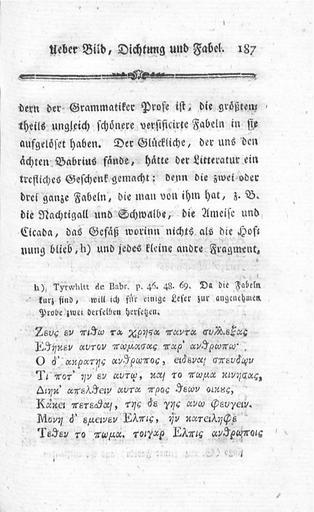 Ueber Bild, Dichtung und Fabel. 187
dern der Grammatiker Prose ist, die größten-
theils ungleich schönere versificirte Fabeln in sie
aufgelöset haben. Der Glückliche, der uns den
ächten Babrius fände, hätte der Litteratur ein
trefliches Geschenk gemacht: denn die zwei oder
drei ganze Fabeln, die man von ihm hat, z. B.
die Nachtigall und Schwalbe, die Ameise und
Cicada, das Gefäß worinn nichts als die Hof-
nung blieb, h) und jedes kleine andre Fragment,
h) Tyrwhitt de Babr. p. 46. 48. 69. Da die Fabeln
kurz sind, will ich für einige Leser zur angenehmen
Probe zwei derselben hersetzen.
Ζευς εν πιθω τα χρηςα παντα συλλεξας
Εθηκεν αυτον πωμασας παρ' ανθρωπω·
Ο δ' ακρατης ανθρωπος, ειδεναι σπευδων
Τι ποτ' ην εν αυτω, και το πωμα κινησας,
Διηκ' απελθειν αυτα προς θεων οικυς,
Κακει πετεσθαι, της δε γης ανω φευγειν.
Μονη δ' εμεινεν Ελπις, ην κατειληφε
Τεθεν το πωμα. τοιγαρ Ελπις ανθρωποις